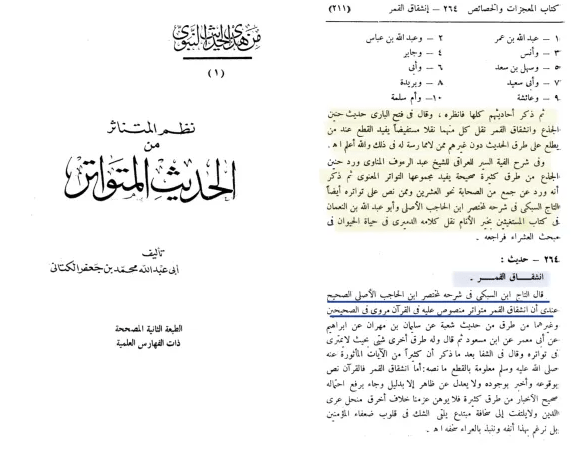 من هدي الحديث النبوي
(١)
نظم المتناثر
من
الحديث المتواتر
تأليف
أبي عبد الله محمد بن جعفر الكتاني
الطبعة الثانية المصححة
ذات الفهارس العلمية
كتاب المعجزات والخصائص ٢٦٤ – إنشقاق القمر (٢١١)
١ – عبد الله بن عمر ٢ – وعبد الله بن عباس
٣ – وأنس ٤ – وجابر
٥ – وسهل بن سعد ٦ – وأبي
٧ – وأبي سعيد ٨ – وبريدة
٩ – وعائشة ١٠– وأم سلمة
ثم ذكر أحاديثهم كلها فانظره ، وقال في فتح الباري حديث حنين
الجذع وانشقاق القمر نقل كل منهما نقلا مستفيضاً يفيد القطع عند من
يطلع على طرق الحديث دون غيرهم ممن لا ممارسة له في ذلك والله أعلم اهـ .
وفي شرح ألفية السير للعراقي للشيخ عبد الرءوف المناوي ورد حنين
الجذع من طرق كثيرة صحيحة يفيد مجموعها التواتر المعنوي ثم ذكر
أنه ورد عن جمع من الصحابة نحو العشرين وممن نص على تواتره أيضاً
التاج السبكي في شرحه لمختصر ابن الحاجب الأصلي وأبو عبد الله بن النعمان
في كتاب المستغيثين بخير الأنام نقل كلامه الدميري في حياة الحيوان في
مبحث العشراء فراجعه .
٢٦٤ – حديث :
انشقاق القمر .
قال التاج ابن السبكي في شرحه لمختصر ابن الحاجب الأصلي الصحيح
عندي أن انشقاق القمر متواتر منصوص عليه في القرآن مروي في الصحيحين
وغيرهما من طرق من حديث شعبة عن سليمان بن مهران عن ابراهيم
عن أبي معمر عن ابن مسعود ثم قال وله طرق أخرى شتى بحيث لا يمترى
في تواتره وقال في الشفا بعد ما ذكر أن كثيراً من الآيات المأثورة عنه
صلى الله عليه وسلم معلومة بالقطع ما نصه: أما انشقاق القمر فالقرآن نص
بوقوعه وأخبر بوجوده ولا يعدل عن ظاهر إلا بدليل وجاء برفع احتماله
صحيح الأخبار من طرق كثيرة فلا يوهن عزمنا خلاف أخرق منحل عرى
الدين ولا يلتفت إلى سخافة مبتدع يلقى الشك في قلوب ضعفاء المؤمنين
بل نرغم بهذا أنفه وننبذ بالعراء سخفه اهـ .